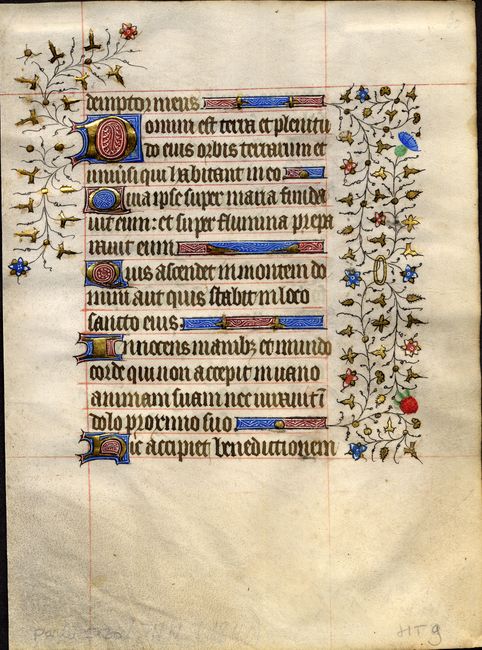 demptor meus
Domini est terra et plenitu
do eius orbis terrarum et
universi qui habitant in eo
Quia ipse super maria funda
vit eum: et super flumina prepa
ravit eum
Quis ascendet in montem do
mini aut quis stabit in loco
sancto eius
Innocens manibz et mundo
corde qui non accepit in vano
animam suam nec iuravit ī
dolo proximo suo
Hic accipiet benedictionem
HT 9